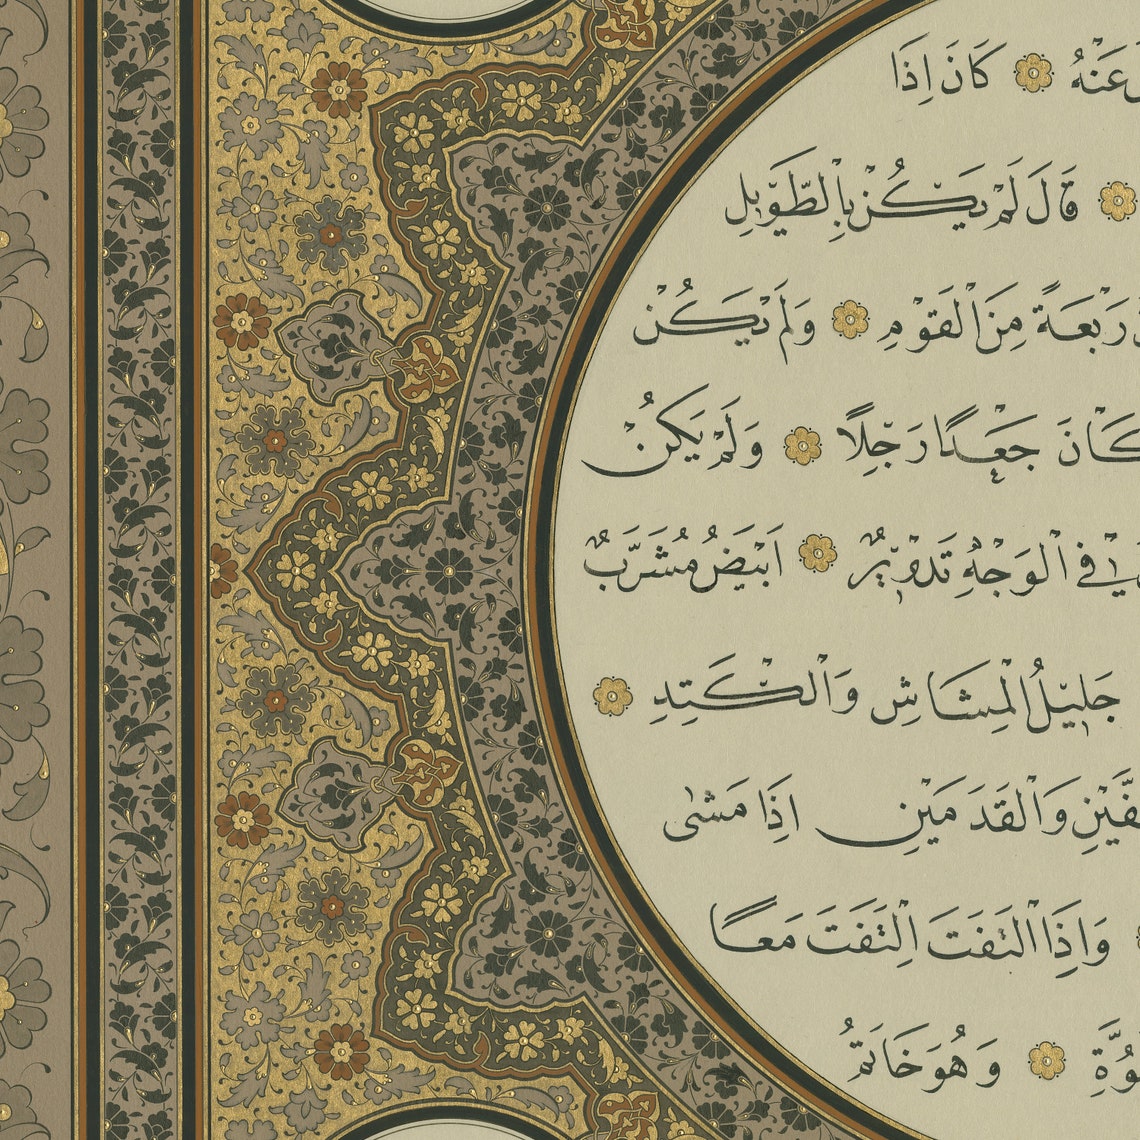 عَنْهُ كَانَ اِذَا
قَالَ لَمْ يَكُنْ بِالطَّوِيلِ
رَبْعَةً مِنَ الْقَوْمِ وَلَمْ يَكُنْ
كَانَ جَعْدًا رَجِلًا وَلَمْ يَكُنْ
فِي الْوَجْهِ تَدْوِيرٌ اَبْيَضُ مُشَرَّبٌ
جَلِيلُ الْمُشَاشِ وَالْكَتِدِ
وَالْقَدَمَيْنِ اِذَا مَشٰى
وَاِذَا الْتَفَتَ اِلْتَفَتَ مَعًا
وَهُوَ خَاتَمُ